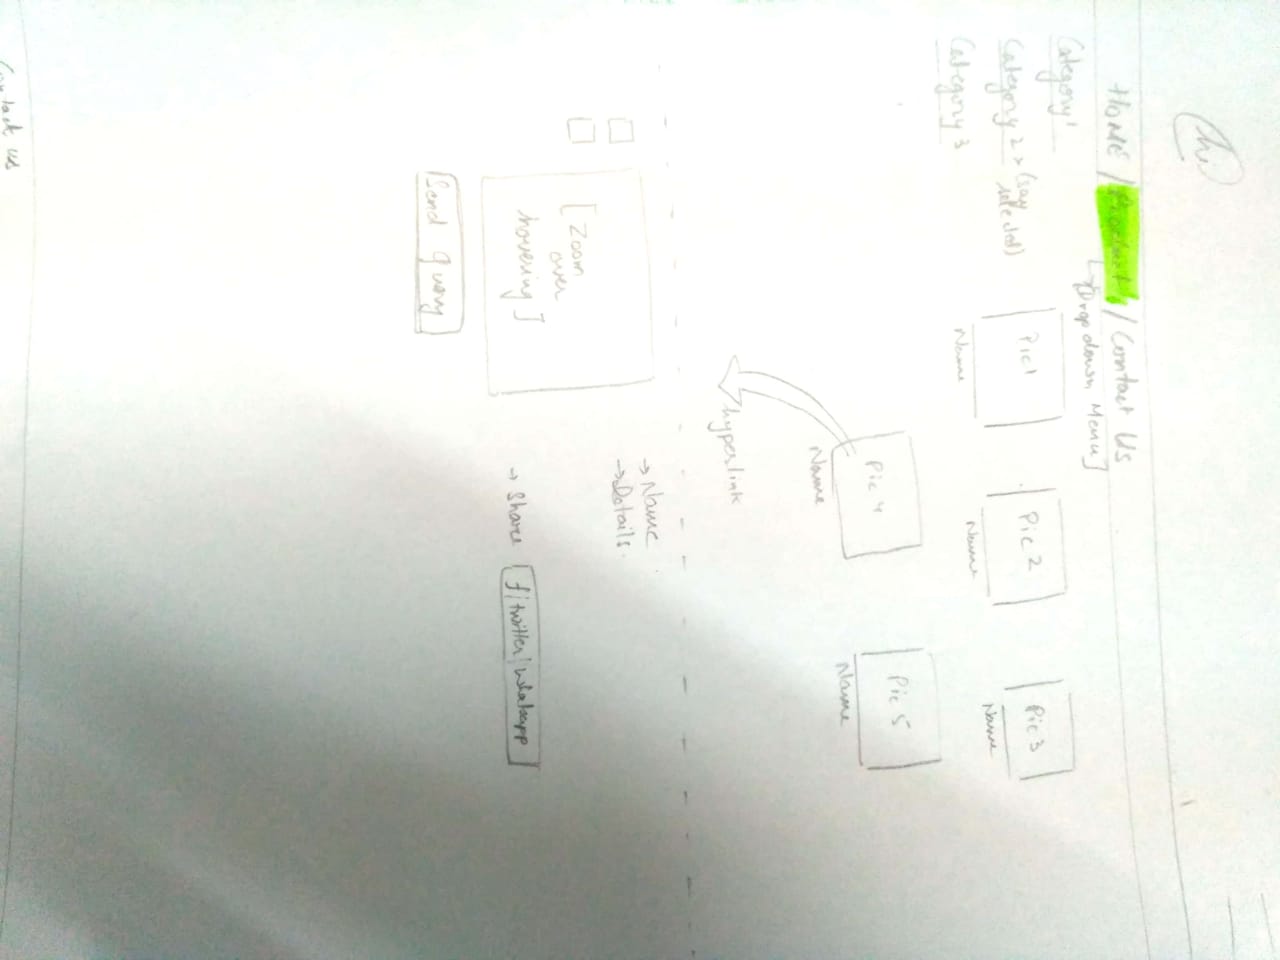 HOME / Products / Contact Us
[Drop down Menu]
Category 1
Category 2 > (say
selected)
Category 3
Pic 1
Name
Pic 2
Name
Pic 3
Name
Pic 4
Name
Pic 5
Name
hyperlink
[Zoom
over
hovering]
→ Name
→ Details.
→ Share
f/twitter/whatsapp
Send query
Contact us